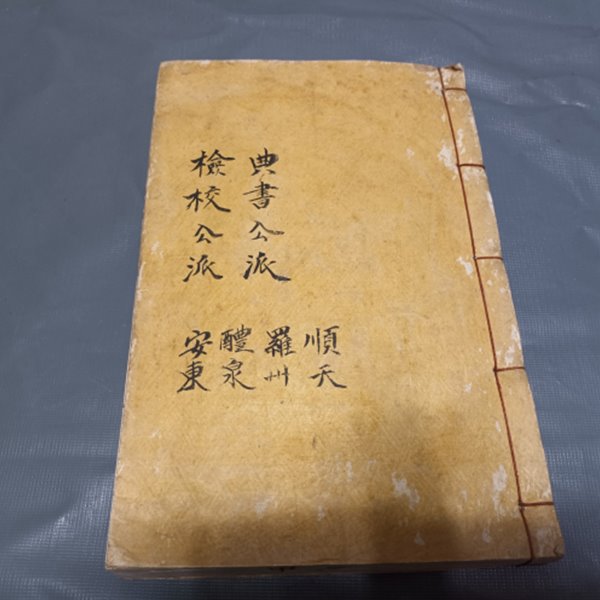 典書公派
檢校公派
順天
羅州
醴泉
安東